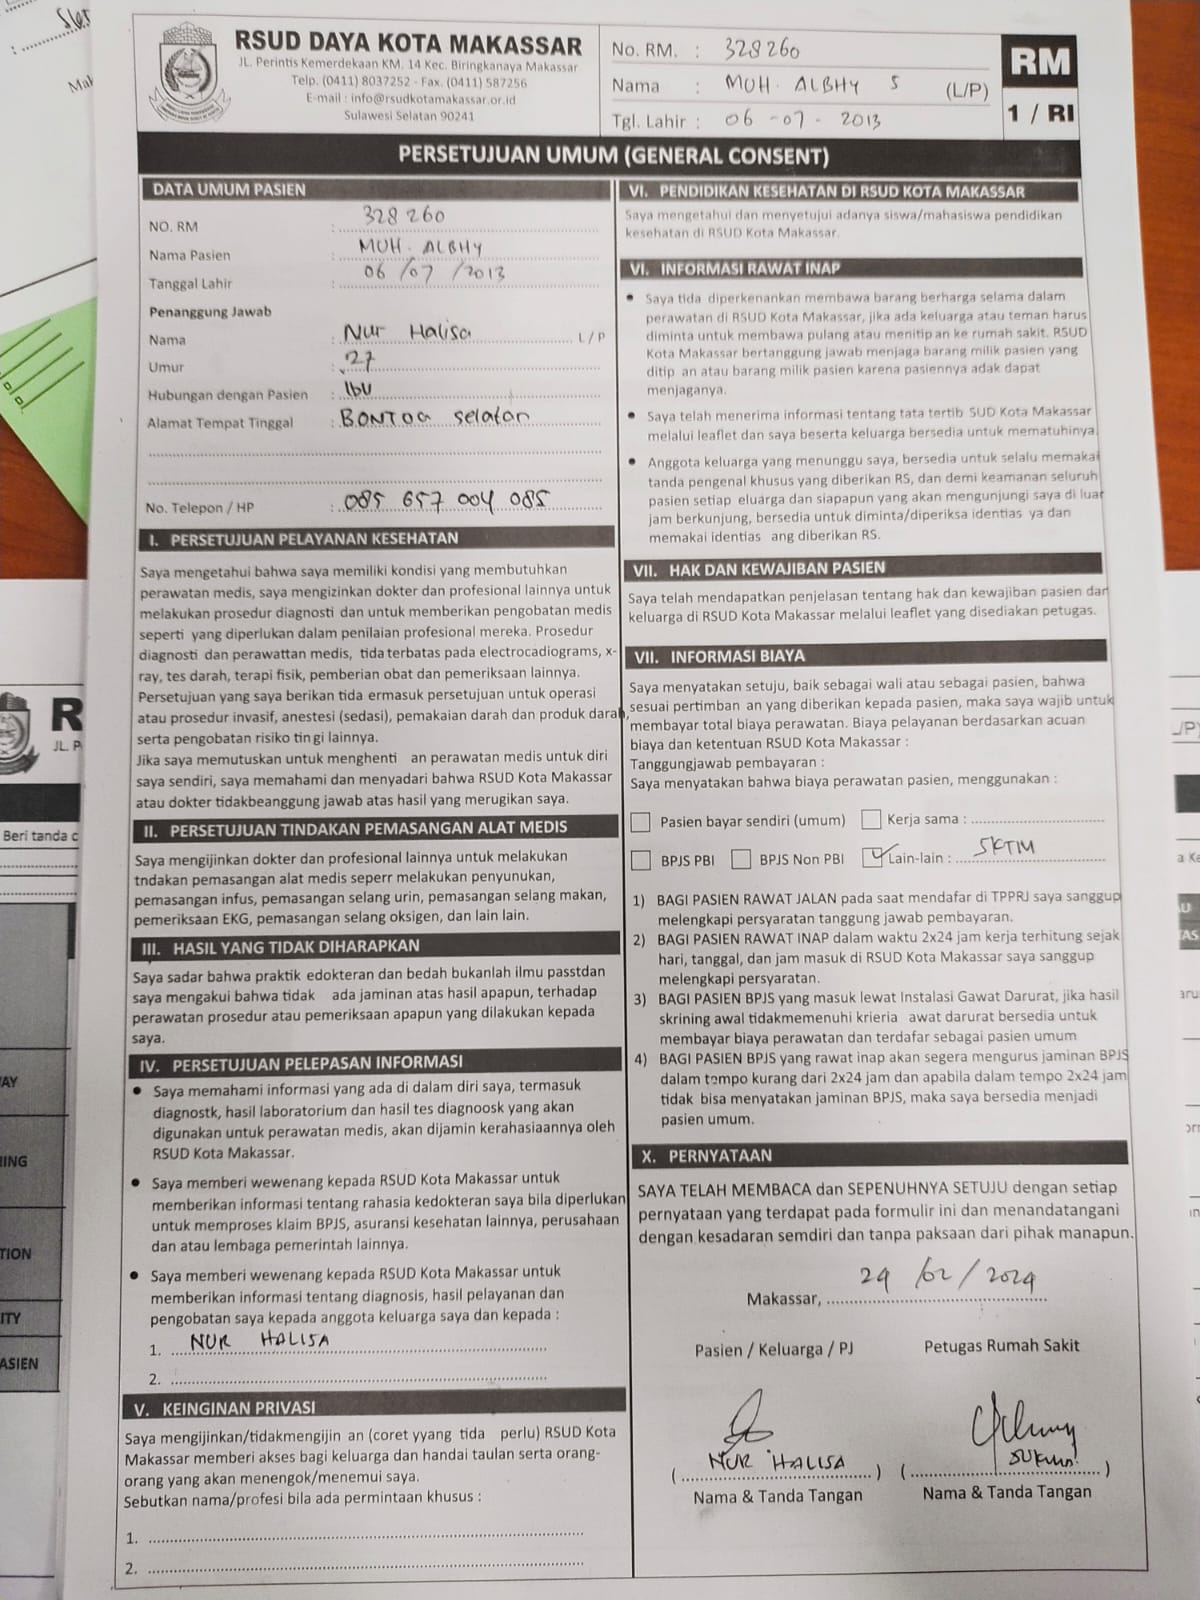 RSUD DAYA KOTA MAKASSAR
JL. Perintis Kemerdekaan KM. 14 Kec. Biringkanaya Makassar
Telp. (0411) 8037252 - Fax. (0411) 587256
E-mail : info@rsudkotamakassar.or.id
Sulawesi Selatan 90241
No. RM. : 328260
Nama : MUH. ALBHY S (L/P)
Tgl. Lahir : 06 -07 - 2013
RM
1 / RI
PERSETUJUAN UMUM (GENERAL CONSENT)
DATA UMUM PASIEN
NO. RM : 328 260
Nama Pasien : MUH. ALBHY
Tanggal Lahir : 06 /07 /2013
Penanggung Jawab
Nama : Nur Halisa L / P
Umur : 27
Hubungan dengan Pasien : Ibu
Alamat Tempat Tinggal : BONTOA selatan
No. Telepon / HP : 085 657 004 085
I. PERSETUJUAN PELAYANAN KESEHATAN
Saya mengetahui bahwa saya memiliki kondisi yang membutuhkan
perawatan medis, saya mengizinkan dokter dan profesional lainnya untuk
melakukan prosedur diagnosti dan untuk memberikan pengobatan medis
seperti yang diperlukan dalam penilaian profesional mereka. Prosedur
diagnosti dan perawattan medis, tida terbatas pada electrocadiograms, x-
ray, tes darah, terapi fisik, pemberian obat dan pemeriksaan lainnya.
Persetujuan yang saya berikan tida ermasuk persetujuan untuk operasi
atau prosedur invasif, anestesi (sedasi), pemakaian darah dan produk darah,
serta pengobatan risiko tin gi lainnya.
Jika saya memutuskan untuk menghenti an perawatan medis untuk diri
saya sendiri, saya memahami dan menyadari bahwa RSUD Kota Makassar
atau dokter tidakbeanggung jawab atas hasil yang merugikan saya.
II. PERSETUJUAN TINDAKAN PEMASANGAN ALAT MEDIS
Saya mengijinkan dokter dan profesional lainnya untuk melakukan
tndakan pemasangan alat medis seperr melakukan penyunukan,
pemasangan infus, pemasangan selang urin, pemasangan selang makan,
pemeriksaan EKG, pemasangan selang oksigen, dan lain lain.
III. HASIL YANG TIDAK DIHARAPKAN
Saya sadar bahwa praktik edokteran dan bedah bukanlah ilmu passtdan
saya mengakui bahwa tidak ada jaminan atas hasil apapun, terhadap
perawatan prosedur atau pemeriksaan apapun yang dilakukan kepada
saya.
IV. PERSETUJUAN PELEPASAN INFORMASI
• Saya memahami informasi yang ada di dalam diri saya, termasuk
diagnostk, hasil laboratorium dan hasil tes diagnoosk yang akan
digunakan untuk perawatan medis, akan dijamin kerahasiaannya oleh
RSUD Kota Makassar.
• Saya memberi wewenang kepada RSUD Kota Makassar untuk
memberikan informasi tentang rahasia kedokteran saya bila diperlukan
untuk memproses klaim BPJS, asuransi kesehatan lainnya, perusahaan
dan atau lembaga pemerintah lainnya.
• Saya memberi wewenang kepada RSUD Kota Makassar untuk
memberikan informasi tentang diagnosis, hasil pelayanan dan
pengobatan saya kepada anggota keluarga saya dan kepada :
1. NUR HALISA
2.
V. KEINGINAN PRIVASI
Saya mengijinkan/tidakmengijin an (coret yyang tida perlu) RSUD Kota
Makassar memberi akses bagi keluarga dan handai taulan serta orang-
orang yang akan menengok/menemui saya.
Sebutkan nama/profesi bila ada permintaan khusus :
1.
2.
VI. PENDIDIKAN KESEHATAN DI RSUD KOTA MAKASSAR
Saya mengetahui dan menyetujui adanya siswa/mahasiswa pendidikan
kesehatan di RSUD Kota Makassar.
VI. INFORMASI RAWAT INAP
• Saya tida diperkenankan membawa barang berharga selama dalam
perawatan di RSUD Kota Makassar, jika ada keluarga atau teman harus
diminta untuk membawa pulang atau menitip an ke rumah sakit. RSUD
Kota Makassar bertanggung jawab menjaga barang milik pasien yang
ditip an atau barang milik pasien karena pasiennya adak dapat
menjaganya.
• Saya telah menerima informasi tentang tata tertib SUD Kota Makassar
melalui leaflet dan saya beserta keluarga bersedia untuk mematuhinya.
• Anggota keluarga yang menunggu saya, bersedia untuk selalu memakai
tanda pengenal khusus yang diberikan RS, dan demi keamanan seluruh
pasien setiap eluarga dan siapapun yang akan mengunjungi saya di luar
jam berkunjung, bersedia untuk diminta/diperiksa identias ya dan
memakai identias ang diberikan RS.
VII. HAK DAN KEWAJIBAN PASIEN
Saya telah mendapatkan penjelasan tentang hak dan kewajiban pasien dan
keluarga di RSUD Kota Makassar melalui leaflet yang disediakan petugas.
VII. INFORMASI BIAYA
Saya menyatakan setuju, baik sebagai wali atau sebagai pasien, bahwa
sesuai pertimban an yang diberikan kepada pasien, maka saya wajib untuk
membayar total biaya perawatan. Biaya pelayanan berdasarkan acuan
biaya dan ketentuan RSUD Kota Makassar :
Tanggungjawab pembayaran :
Saya menyatakan bahwa biaya perawatan pasien, menggunakan :
Pasien bayar sendiri (umum) Kerja sama :
BPJS PBI BPJS Non PBI Lain-lain : SKTM
1) BAGI PASIEN RAWAT JALAN pada saat mendafar di TPPRJ saya sanggup
melengkapi persyaratan tanggung jawab pembayaran.
2) BAGI PASIEN RAWAT INAP dalam waktu 2x24 jam kerja terhitung sejak
hari, tanggal, dan jam masuk di RSUD Kota Makassar saya sanggup
melengkapi persyaratan.
3) BAGI PASIEN BPJS yang masuk lewat Instalasi Gawat Darurat, jika hasil
skrining awal tidakmemenuhi krieria awat darurat bersedia untuk
membayar biaya perawatan dan terdafar sebagai pasien umum
4) BAGI PASIEN BPJS yang rawat inap akan segera mengurus jaminan BPJS
dalam tempo kurang dari 2x24 jam dan apabila dalam tempo 2x24 jam
tidak bisa menyatakan jaminan BPJS, maka saya bersedia menjadi
pasien umum.
X. PERNYATAAN
SAYA TELAH MEMBACA dan SEPENUHNYA SETUJU dengan setiap
pernyataan yang terdapat pada formulir ini dan menandatangani
dengan kesadaran semdiri dan tanpa paksaan dari pihak manapun.
Makassar, 29 /02 / 2024
Pasien / Keluarga / PJ Petugas Rumah Sakit
( NUR HALISA ) ( )
Nama & Tanda Tangan Nama & Tanda Tangan
Beri tanda